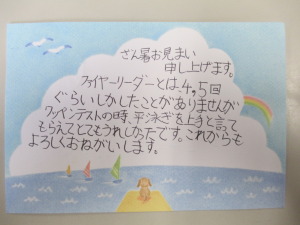 ざん暑お見まい
申し上げます。
ファイヤーリーダーとは、4,5回
ぐらいしかしたことがありませんが
ワッペンテストの時、平泳ぎを上手と言って
もらえてとてもうれしかったです。これからも
よろしくおねがいします。